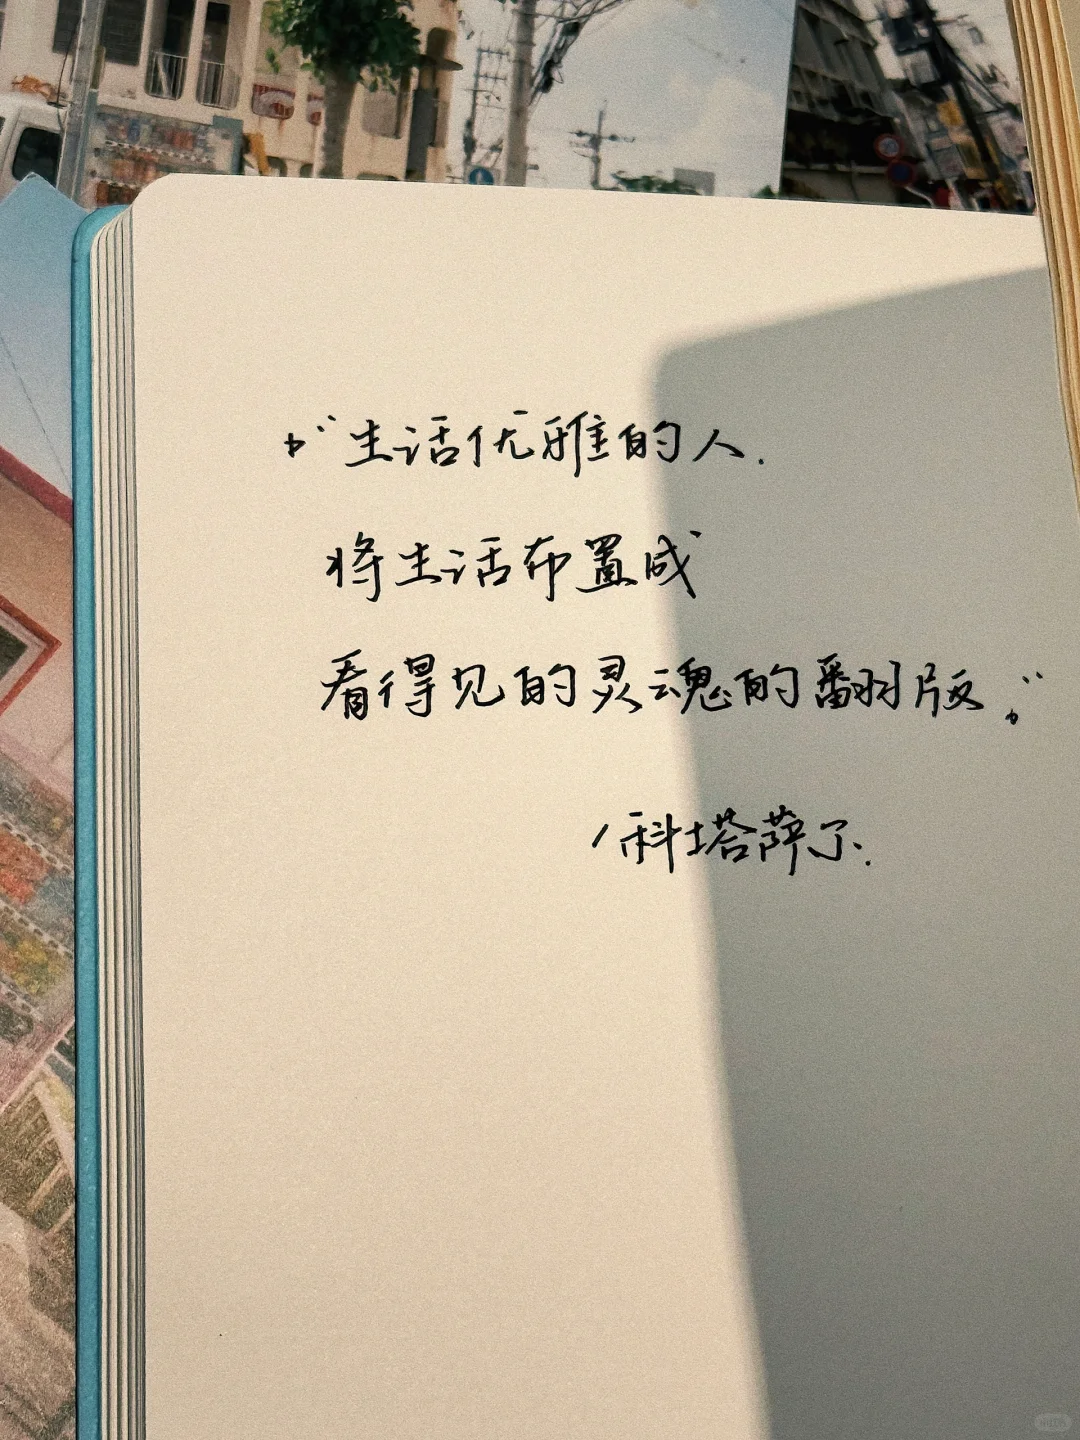 “生活优雅的人.
将生活布置成
看得见的灵魂的翻版。”
/科塔萨尔.